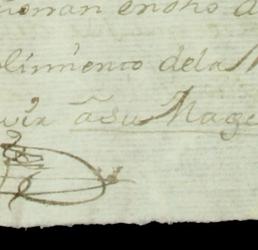 onan en dho d
plimiento dela
vir âsu Mage